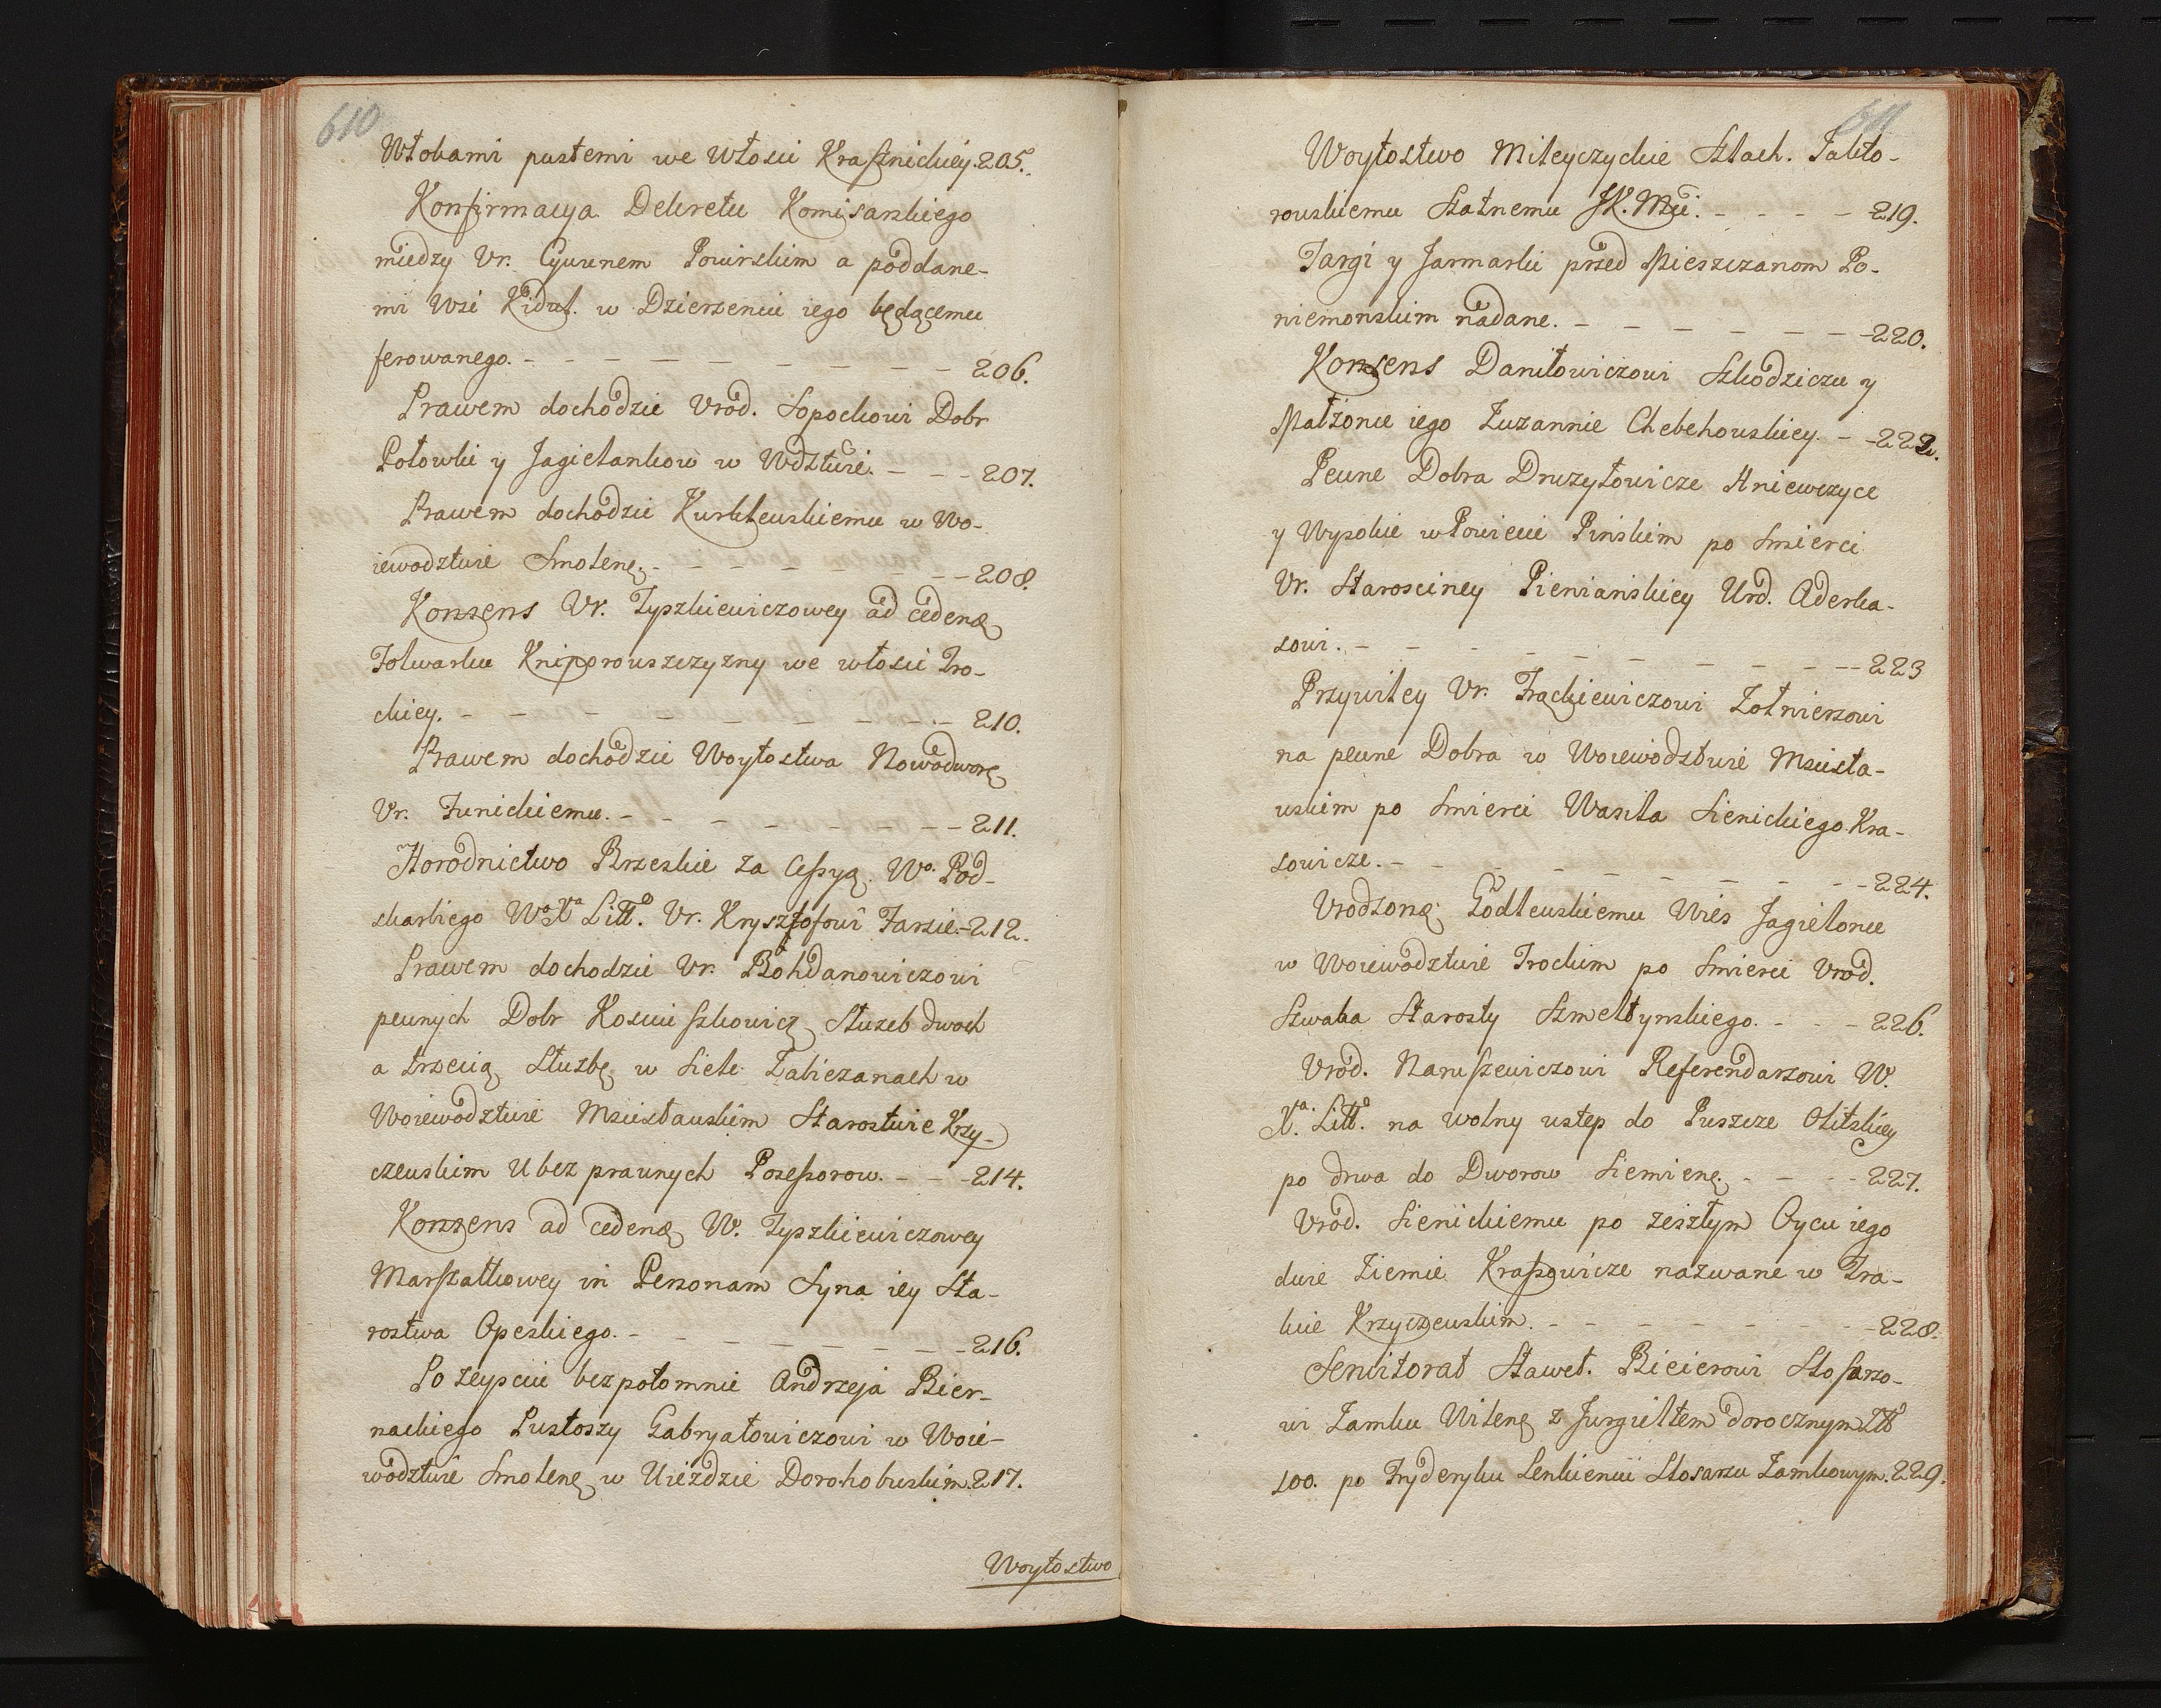 610
Włokami pustemi we Włosci Krasznickiey. 205.
Konfirmacya Dekretu Komisarskiego
między Vr. Cywunem Powirskim a poddane-
mi Wsi Kidzt. w Dzierzeniu iego będącemu
ferowanego. - - - - - - - - - 206.
Prawem dochodzie Vrod. Sopockowi Dobr
Połowki y Jagiełankow w Wdztwie. - - - 207.
Prawem dochodzie Kurklewskiemu w Wo-
iewodztwie Smolenę. - - - - - - - - 208.
Konsens Vr. Tyszkiewiczowey ad cedenꝫ
Folwarku Kniporowszczyzny we włosci Tro-
ckiey. - - - - - - - - - 210.
Prawem dochodzie Woytostwa Nowodworꝫ
Vr. Tunickiemu. - - - - - - - - 211.
Horodnictwo Brzeskie za Cessyą Wo. Pod-
skarbiego Wo Xa Littº. Vr. Krysztofowi Tarsie. - 212.
Prawem dochodzie Vr. Bohdanowiczowi
pewnych Dobr Kosciuszkowicz Słuzeb dwoch
a trzecią Służbę w Siele Zabiezanach w
Woiewodztwie Mscisławskim Starostwie Krzy-
czewskim U bez prawnych Posessorow. - - - 214.
Konsens ad cedenꝫ W. Tyszkiewiczowey
Marszałkowey in Personam Syna iey Sta-
rostwa Opeskiego. - - - - - - - - 216.
Po zeysciu bezpotomnie Andrzeja Bier-
nackiego Pustoszy Gabryałowiczowi w Woie-
wodztwie Smolenꝫ w Uiezdzie Dorohobuskim. 217.
Woytostwo
611
Woytostwo Mileyczyckie Szlach. Fakto-
rowskiemu Statnemu JK. Mci. - - - - 219.
Targi y Jarmarki przed Mieszczanom Po-
niemonskim nadane. - - - - - - - 220.
Konsens Daniłowiczowi Szkodziczu y
Małzonce iego Zuzannie Chebehowskiey. - - 222.
Pewne Dobra Druzyłowicze Hniewczyce
y Wysokie w Powiecie Pińskim po Smierci
Vr. Starosciney Pieniańskiey Urd. Aderka-
sowi. - - - - - - - - - - - 223
Przywiley Vr. Frąckiewiczowi Zołnierzowi
na pewne Dobra w Woiewodstwie Mscisła-
wskim po Smierci Wasila Sienickiego Kra-
sowicze. - - - - - - - - - 224.
Vrodzonꝫ Godlewskiemu Wies Jagielonce
w Woiewodztwie Trockim po Smierci Vrod.
Szwaba Starosty Szmeltynskiego. - - - 226.
Vrod. Naruszewiczowi Referendarzowi W.
Xa. Littº. na wolny wstep do Puszcze Olitskiey
po drwa do Dworow Siemienꝫ. - - - - 227.
Vrod. Sienickiemu po zeszłym Oycu iego
dwie Ziemie Krassowicze nazwane w Tra-
kcie Krzyczewskim. - - - - - - - - 228.
Serwitorat Sławet. Bieierowi Slosarzo-
wi Zamku Wilenꝫ z Jurgieltem dorocznym Złº
100. po Fryderyku Senkienii Slosarzu Zamkowym. 229.